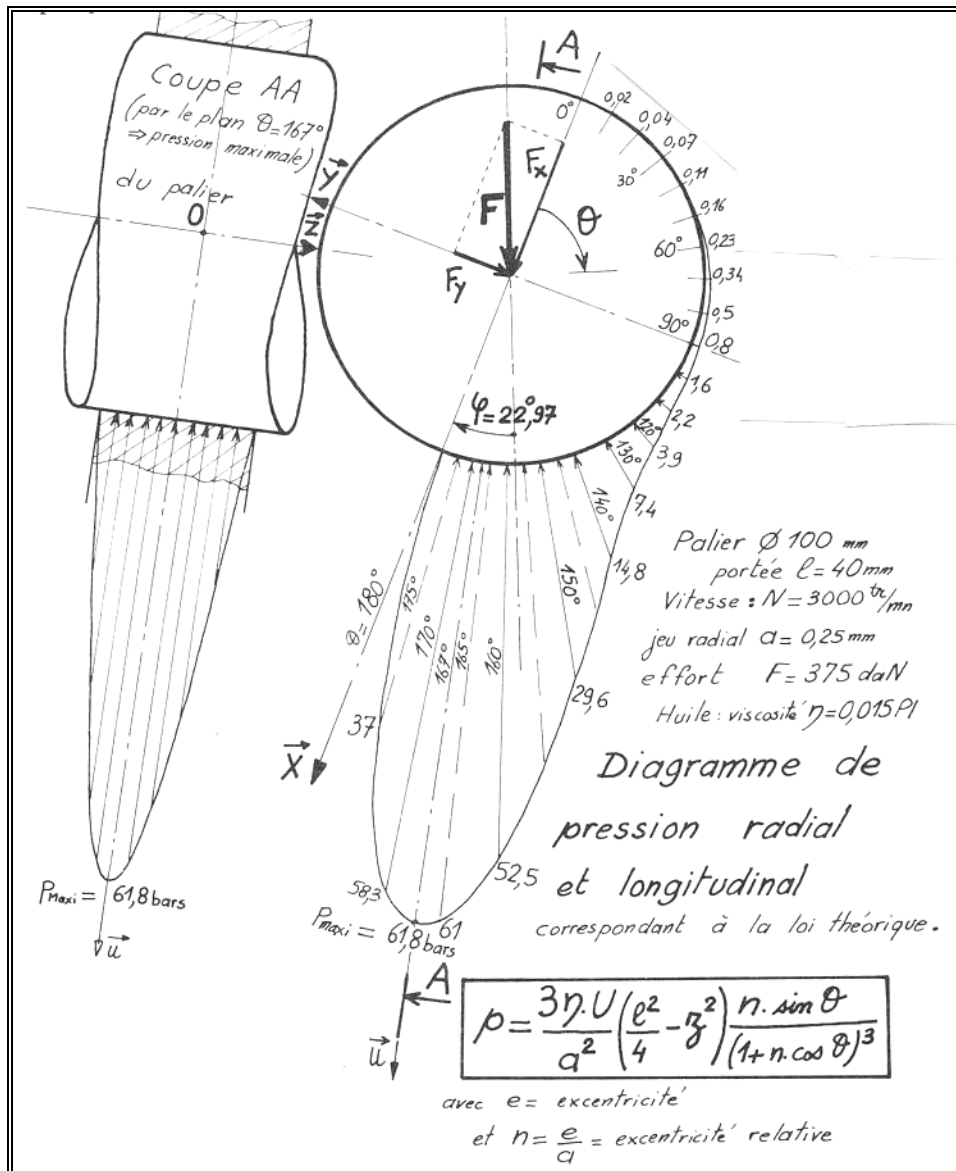 Coupe AA
(par le plan θ=167°
⇒ pression maximale)
du palier
O
Pmaxi = 61,8 bars
u
A
0°
0,02
0,04
0,07
30°
0,11
0,16
60°
0,23
0,34
0,5
90°
0,8
1,6
2,2
120°
3,9
130°
7,4
140°
14,8
150°
29,6
160°
52,5
165°
61
167°
Pmaxi = 61,8 bars
170°
58,3
175°
37
θ=180°
Y
Z
F
Fx
Fy
θ
φ=22°,97
X
A
u
Palier Ø 100 mm
portée l = 40 mm
Vitesse : N = 3000 tr/mn
jeu radial a = 0,25 mm
effort F = 375 daN
Huile : viscosité η=0,015 Pl
Diagramme de
pression radial
et longitudinal
correspondant à la loi théorique.
p = 3η.U/a² (l²/4 - z²) n.sin θ/(1+n.cos θ)³
avec e = excentricité
et n = e/a = excentricité relative